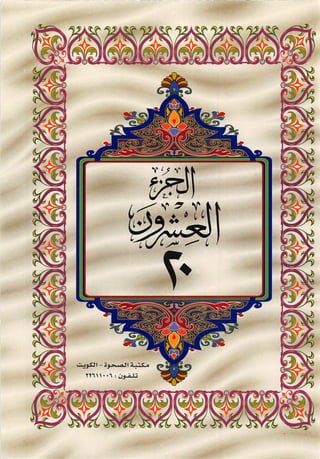 الجزء
العشرون
٢٠
مكتبة الصحوة - الكويت
تلفون : ٢٢٦١١٠٠٦